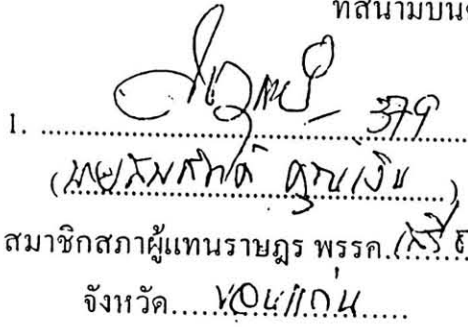 ที่สนามบิน
1. 379
(นายสมศักดิ์ คุณเงิน)
สมาชิกสภาผู้แทนราษฎร พรรค
จังหวัด ขอนแก่น